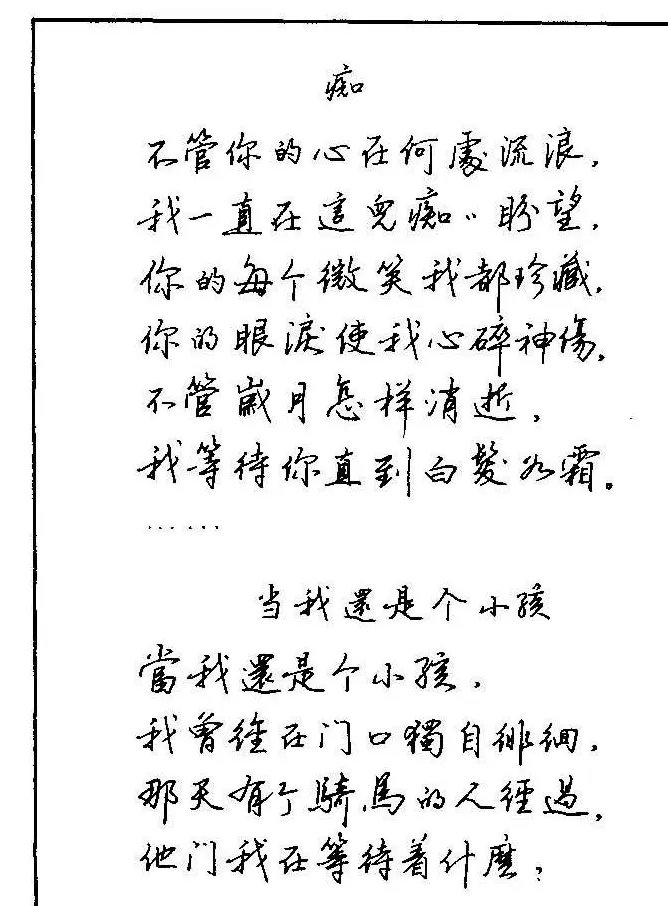 痴
不管你的心在何處流浪，
我一直在這兒痴〃盼望，
你的每个微笑我都珍藏，
你的眼淚使我心碎神傷，
不管歲月怎样消逝，
我等待你直到白髮如霜。
……
当我還是个小孩
當我還是个小孩，
我曾經在门口獨自徘徊，
那天有个騎馬的人經過，
他门我在等待着什麼？